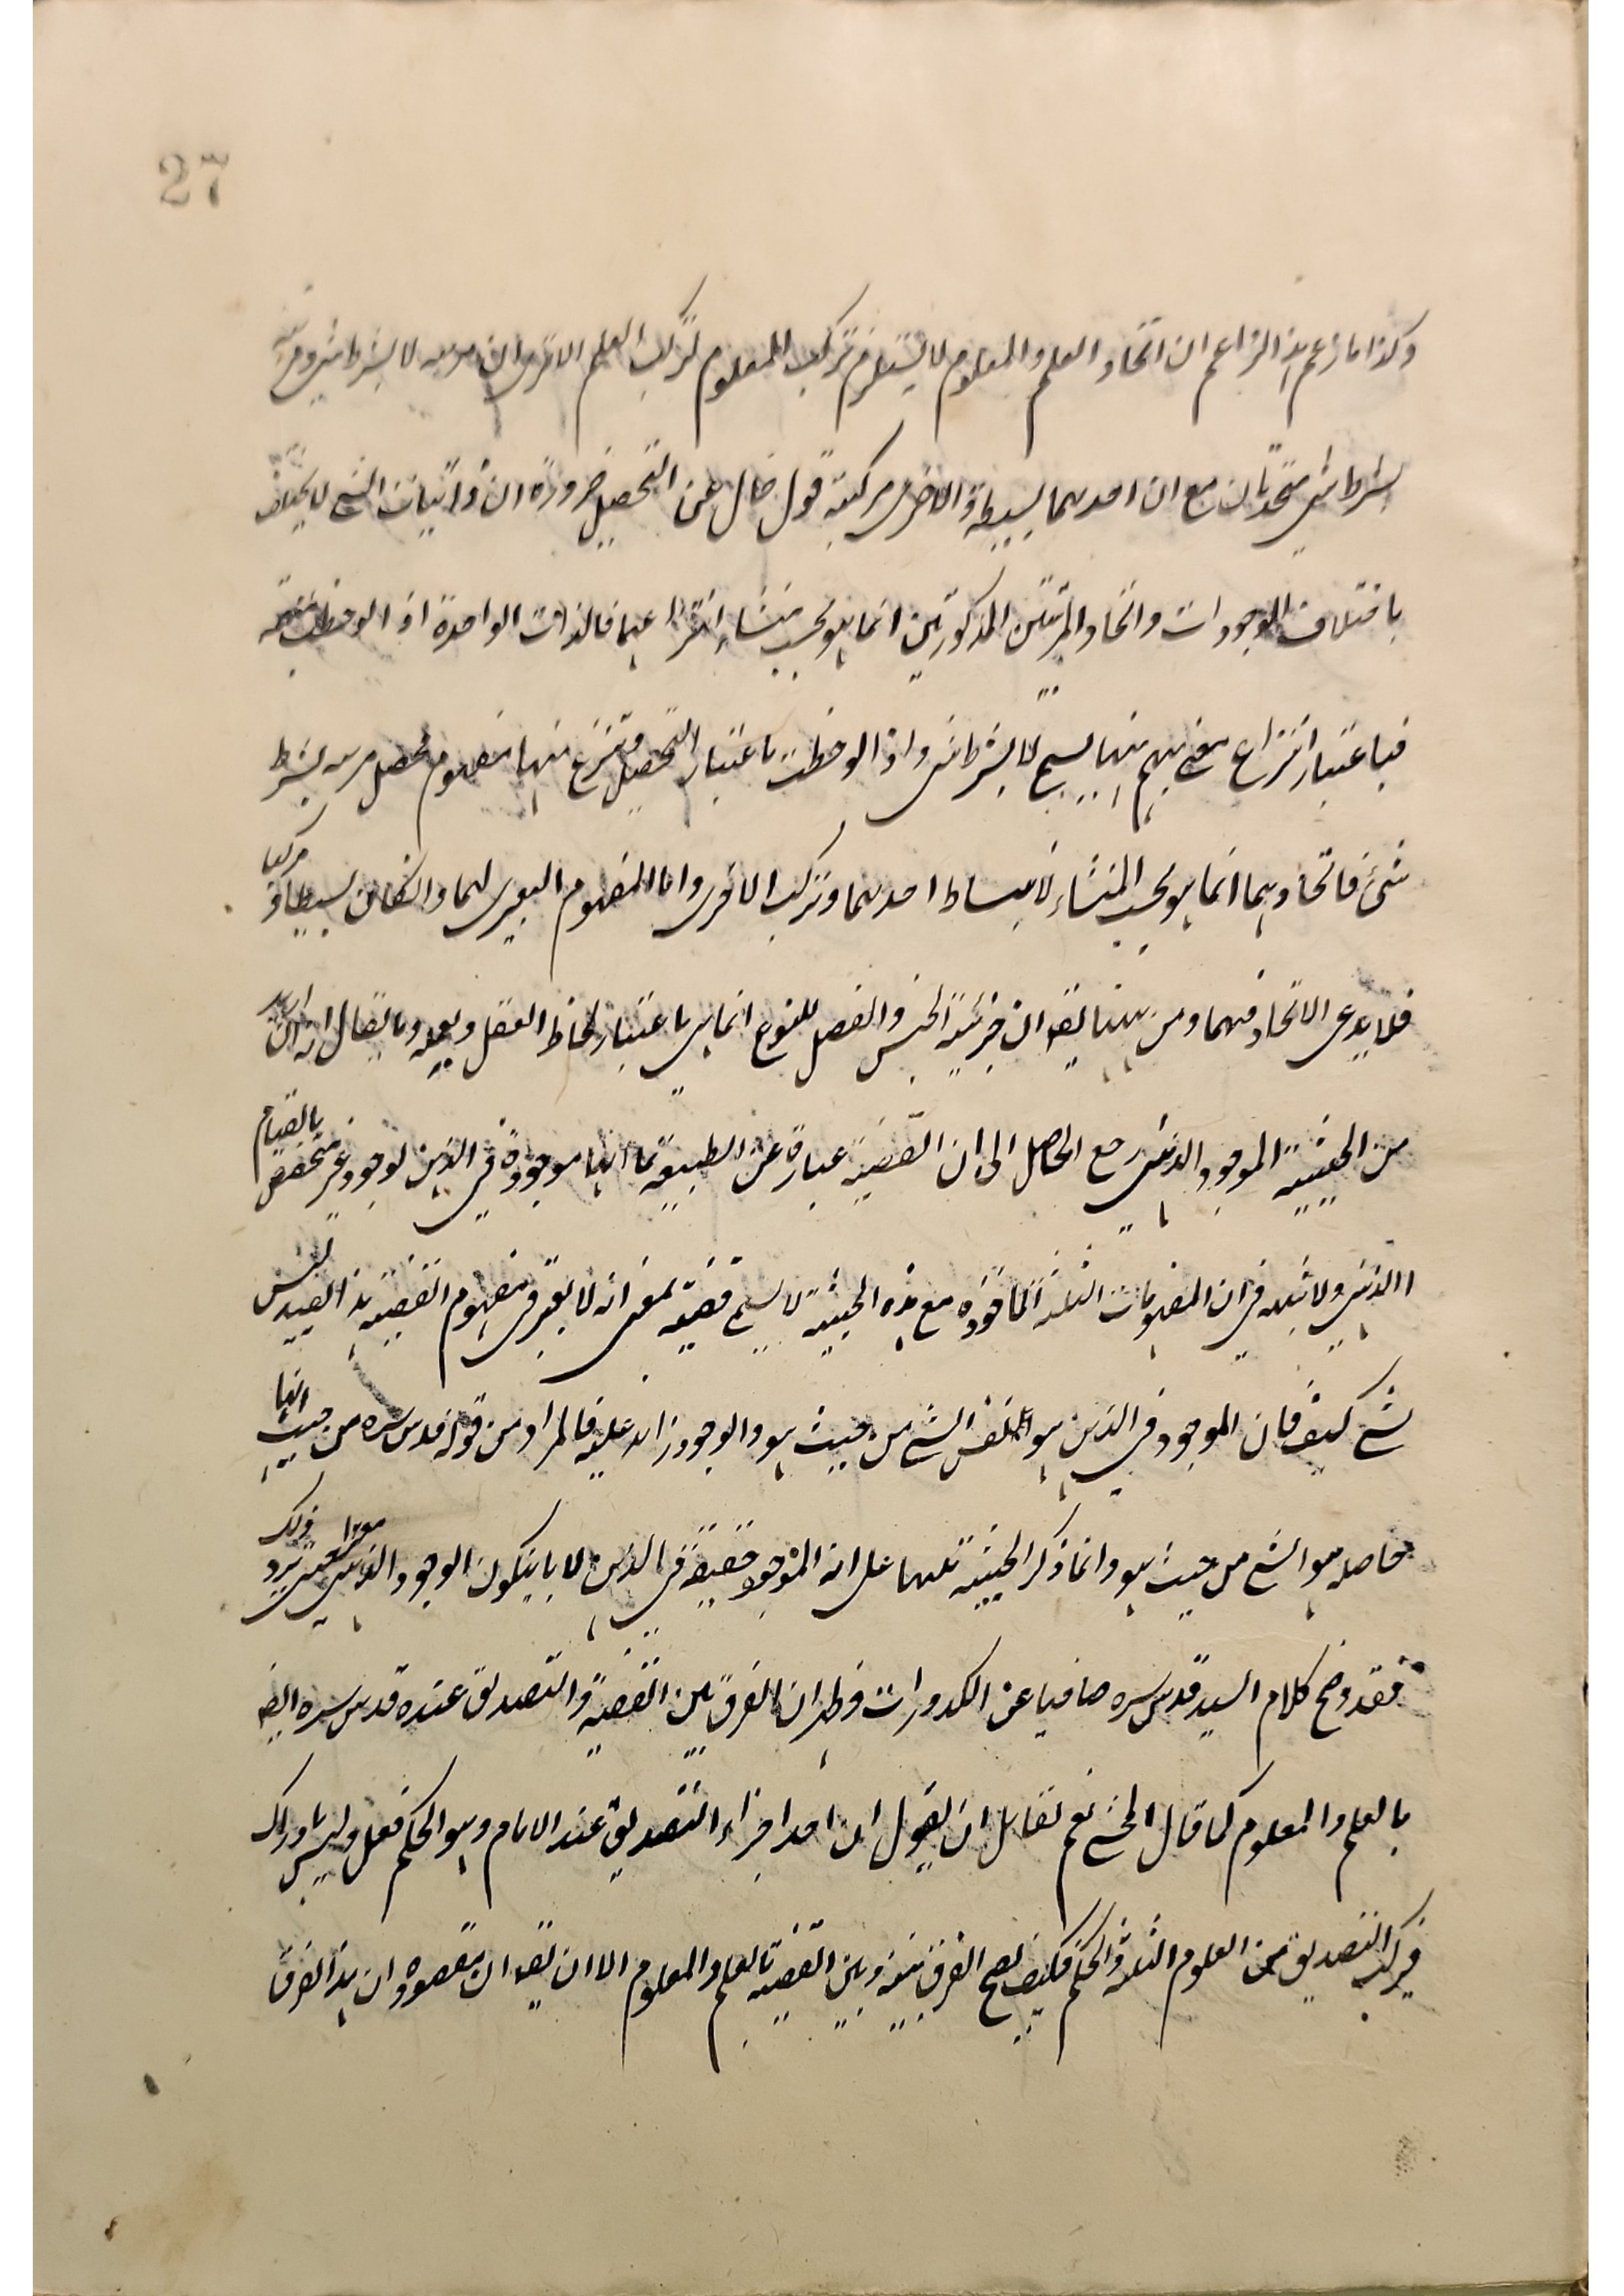 27
وكذا ما زعم هذا الزاعم ان اتحاد العلم والمعلوم لا يستلزم تركب المعلوم تركب العلم الا ترى ان مرتبه لا بشرط شئ ومرتبه
بشرط شئ متحدتان مع ان احدهما بسيطة والاخرى مركبة قول خال عن التحصيل ضرورة ان ذاتيات الشئ لا يختلف
باختلاف الوجودات واتحاد المرتبتين المذكورتين انما هو بحسب منشاء انتزاعهما فالذات الواحدة اذا لوحظت
فباعتبار انتزاع معنى مبهم منها يسمى لا بشرط شئ واذا لوحظت باعتبار التحصيل وتنزع منها مفهوم محصل مرتبه بشرط
شئ فاتحادهما انما هو بحسب المنشاء لانبساط احدهما وتركب الاخرى واما المفهوم التعبيرى لهما وان كان بسيطا او مركبا
فلا يدعى الاتحاد فيهما ومن ههنا يقع ان جزئية الجنس والفصل للنوع انما هى باعتبار لحاظ العقل وما يقال انه ان اريد
من الحيثية الموجود الذهنى رجع الحاصل الى ان القضية عبارة عن الطبيعة بما انها موجودة فى الذهن لوجود غير متخصص بالقيام
الذهنى ولا شبهه فى ان المفهومات الثلثة الماخوذه مع هذه الحيثية لا يسمى قضية بمعنى انه لا يعتبر فى مفهوم القضيه هذا القيد ليس
بشئ كيف فان الموجود فى الذهن هو نفس الشئ من حيث هو والوجود زائد عليه فالمراد من قوله قدس سره من حيث انها
حاصله هو الشئ من حيث هو وانما ذكر الحيثيه تنبيها على انه الموجود حقيقة فى الذهن لا بان يكون الوجود الذهنى معتبرا حتى يرد ذلك
فقد وضح كلام السيد قدس سره صافيا عن الكدورات وظهر ان الفرق بين القضية والتصديق عنده قدس سره ايضا
بالعلم والمعلوم كما قال المحشى نعم لقائل ان يقول ان احد اجزاء التصديق عند الامام وهو الحكم فعل وليس بادراك
فيركب التصديق من العلوم الثلثة والحكم فكيف يصح الفرق بينه وبين القضيه بالعلم والمعلوم الا ان يقع ان مقصوده ان هذا الفرق